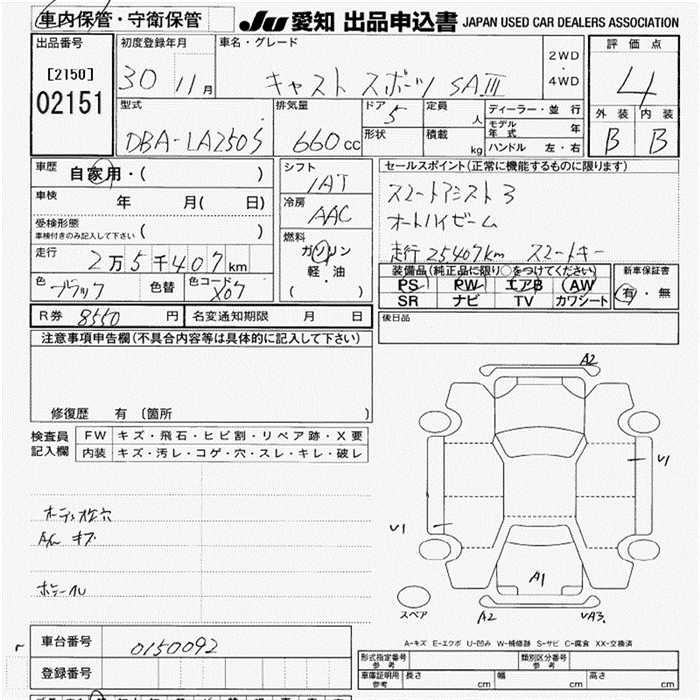 車内保管・守衛保管
JU 愛知 出品申込書 JAPAN USED CAR DEALERS ASSOCIATION
出品番号
[2150]
02151
初度登録年月
30 11月
車名・グレード
キャスト スポーツ SAⅢ
2WD
・
4WD
評価点
4
外装 内装
B B
型式
DBA-LA250S
排気量
660cc
ドア 5
形状
定員 人
積載 kg
ディーラー・並 行
モデル年式 年
ハンドル 左・右
車歴
自家用・( )
車検
年 月( 日)
受検形態
車検付きのみ記入して下さい ( )
走行
2万5千407km
色 ブラック 色替 色コード X07
シフト
IAT
冷房
AAC
燃料
ガソリン
軽・油
( )
セールスポイント(正常に機能するものに限ります)
スマートアシスト3
オートハイビーム
走行25407km スマートキー
装備品(純正品に限り○をつけてください)
PS PW エアB AW
SR ナビ TV カワシート
新車保証書
有・無
R券 8550 円 名変通知期限 月 日
後日品
注意事項申告欄(不具合内容等は具体的に記入して下さい)
修復歴 有 (箇所 )
検査員記入欄
FW キズ・飛石・ヒビ割・リペア跡・X要
内装 キズ・汚レ・コゲ・穴・スレ・キレ・破レ
A2
U1
U1
A1
スペア
A2
UA3.
A-キズ E-エクボ U-凹み W-補修跡 S-サビ C-腐食 XX-交換済
車台番号 0150092
登録番号
形式指定番号 参考
類別区分番号 参考
車庫証明用 参考 長さ cm 幅 cm 高さ cm